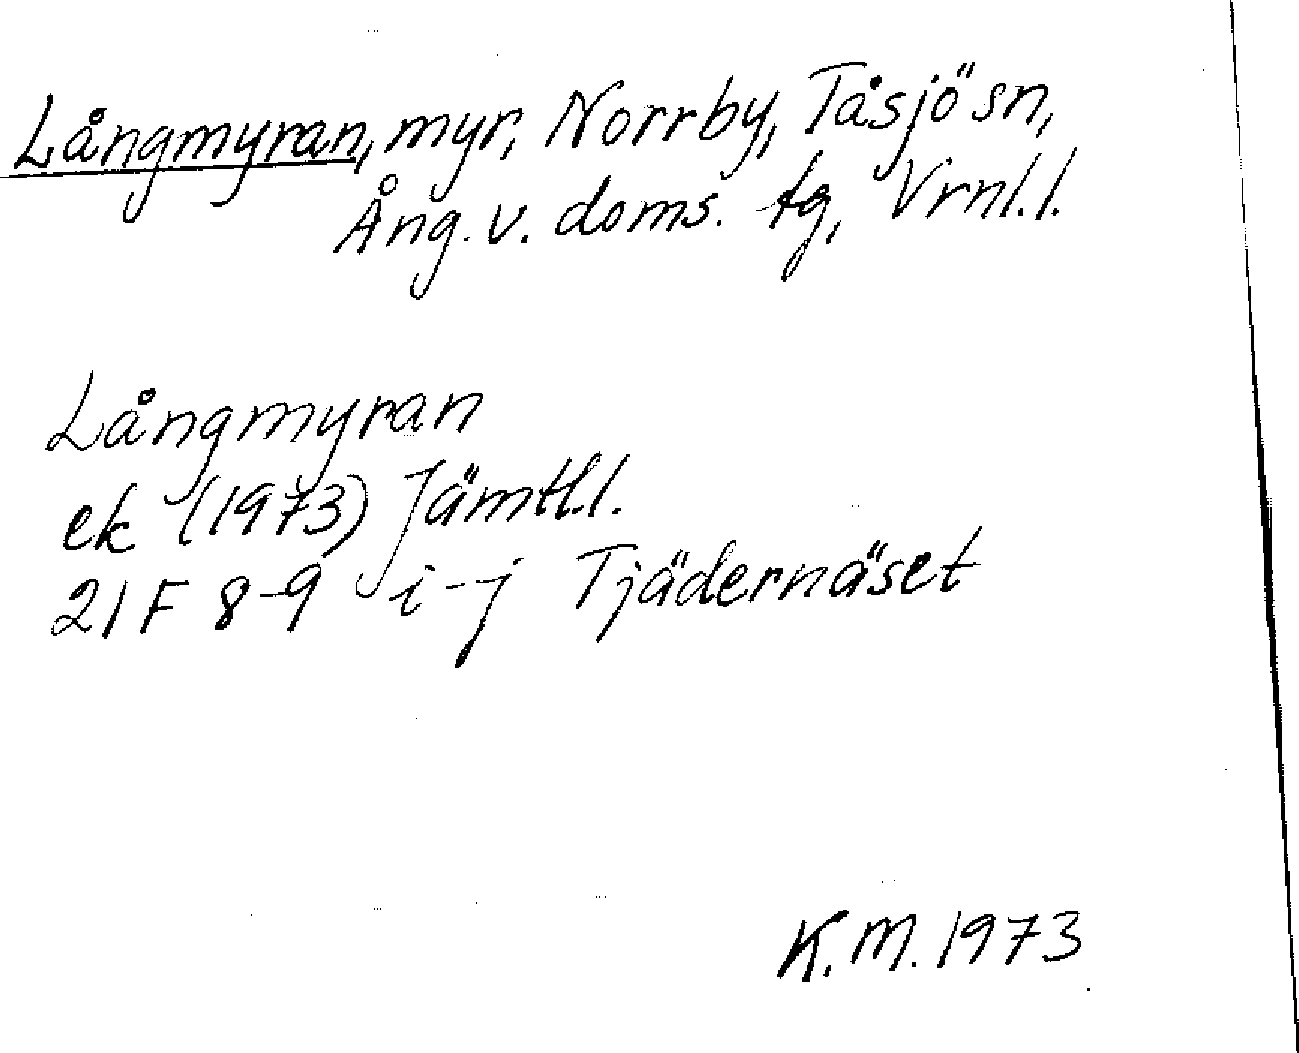 Långmyran, myr, Norrby, Tåsjö sn,
Ång. v. doms. tg, Vrnl. l.
Långmyran
ek (1973) Jämtl. l.
21 F 8-9 i-j Tjädernäset
K. M. 1973